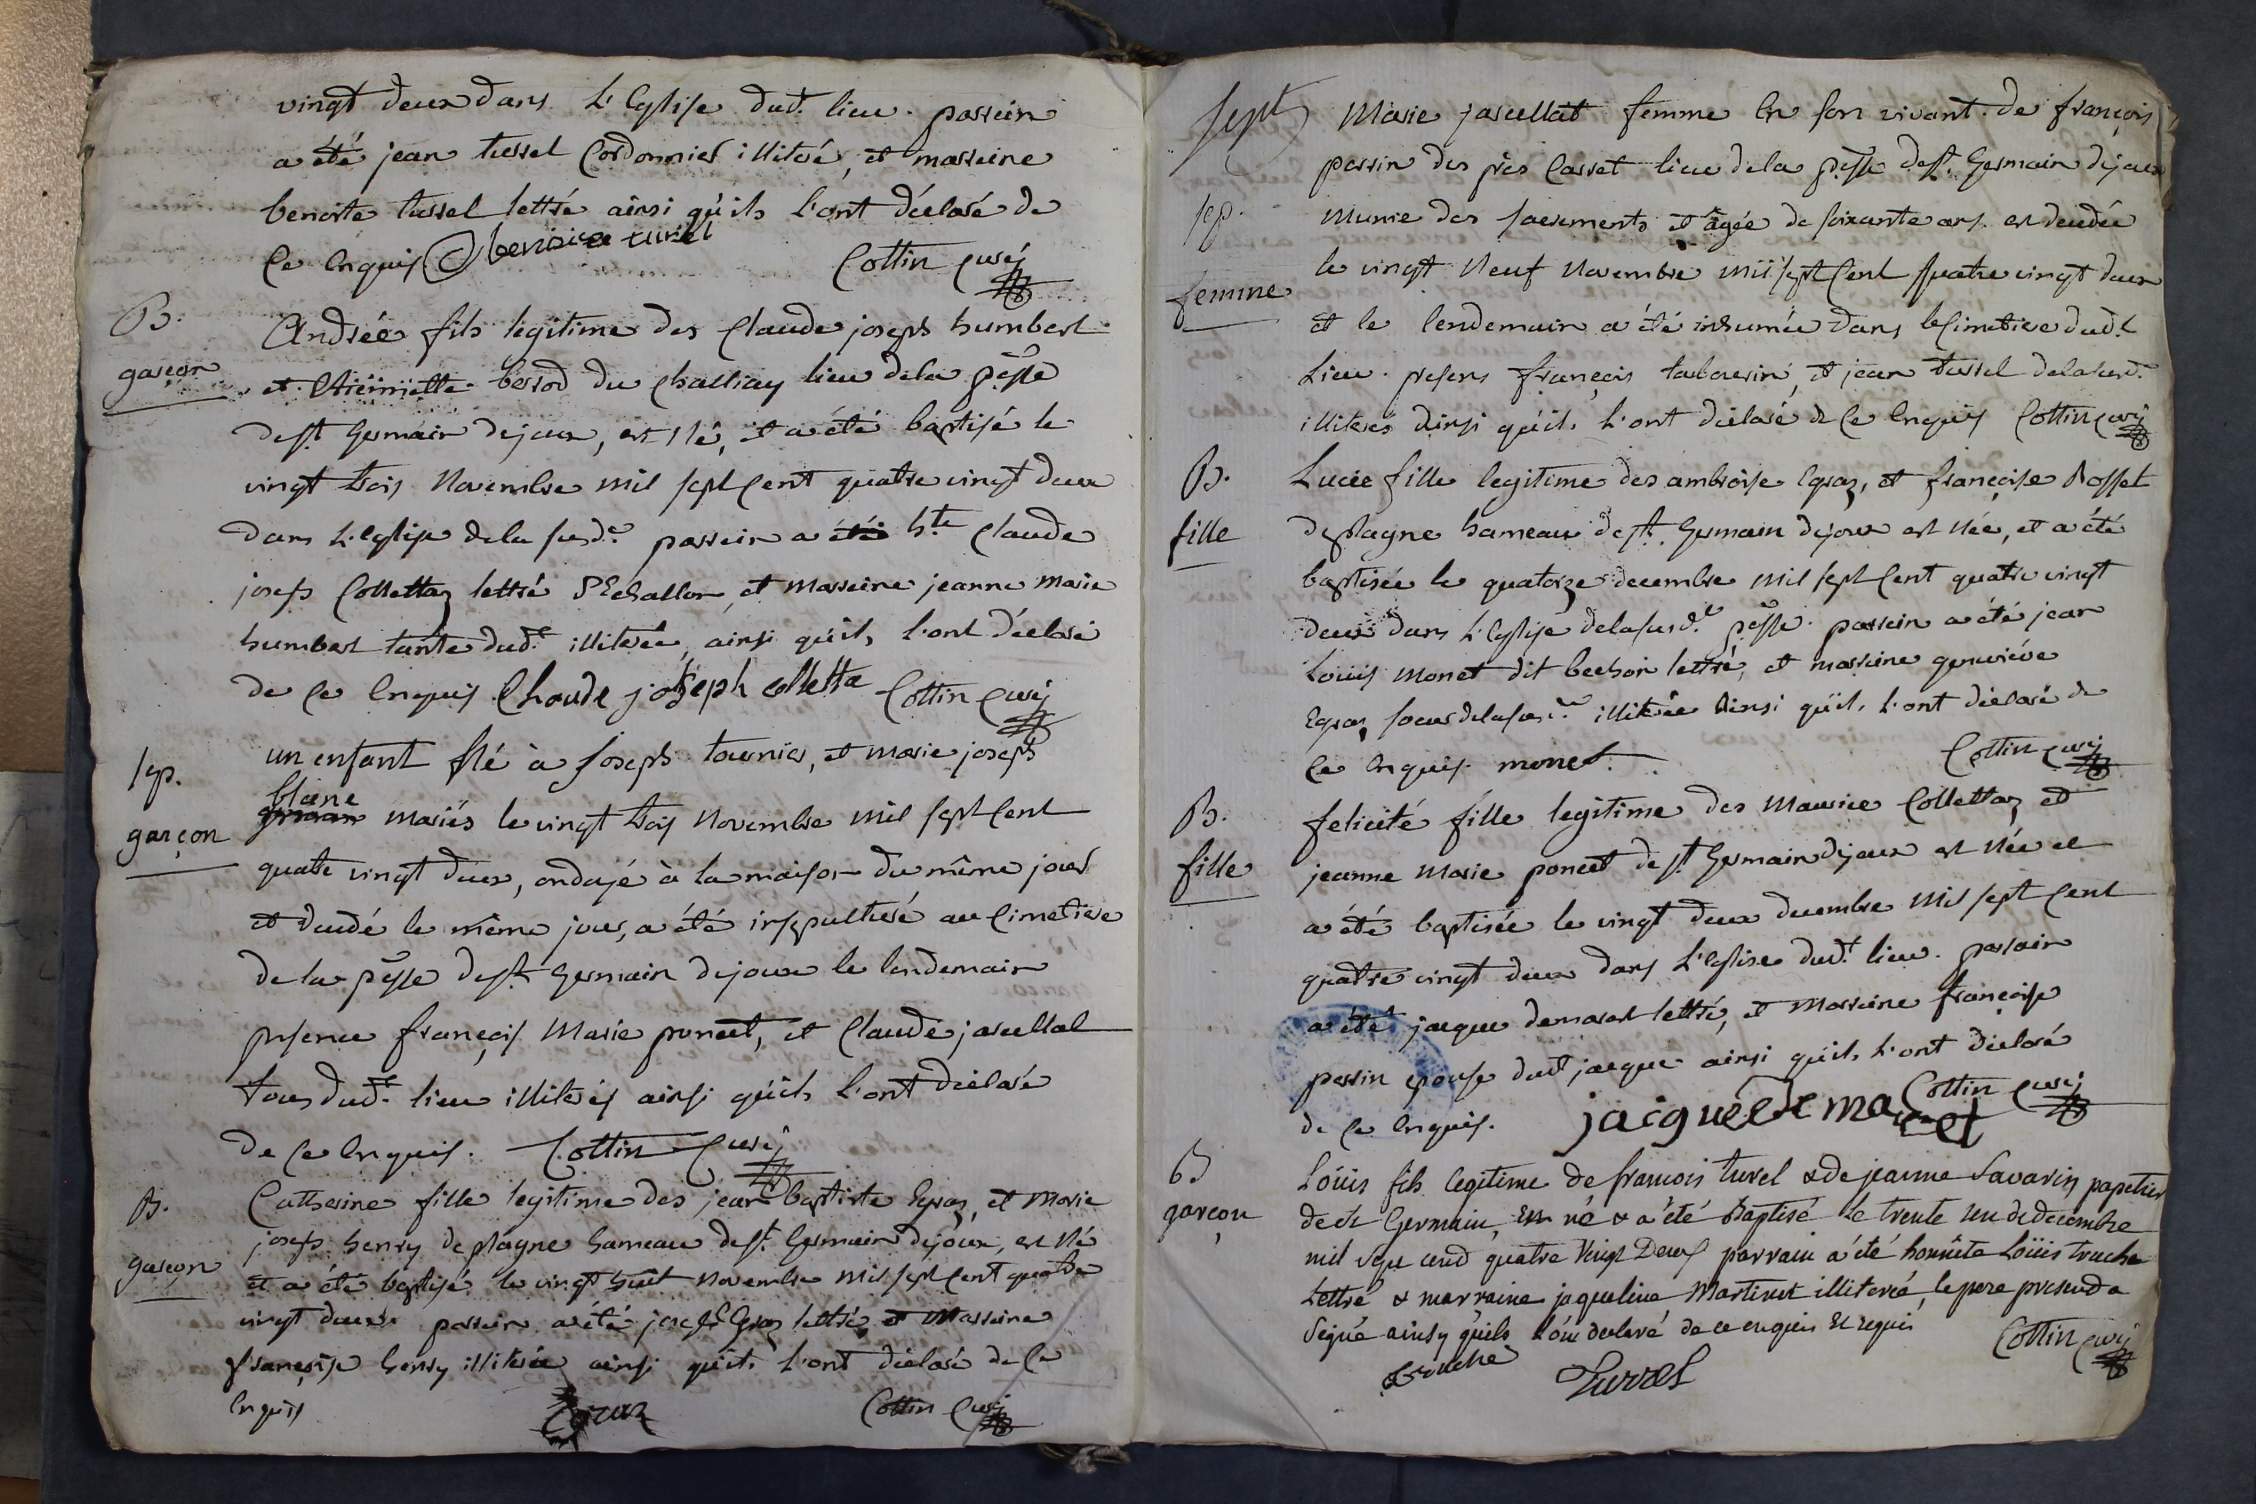 vingt deux dans L'Eglise dud.t lieu. parrein
a été jean turrel Cordonnier illiteré, et marreine
benoite turrel lettré ainsi qu'ils l'ont déclaré de
Ce Enquis benoite turel Cottin curé
B.
garçon
Andrée fils legitime des Claude joseph humbert
et Etiennette berrod du Challiay lieu dela p.sse
de st Germain dejoux, est Né, et a été baptisé le
vingt trois Novembre mil sept Cent quatre vingt deux
dans L'eglise dela susd.e parrein a été h.te Claude
joseph Collettaz lettré d'Echallon, et Marreine jeanne Marie
humbert tante dud.t illiterée, ainsi qu'ils l'ont déclaré
de Ce Enquis Cloude joseph colletta Cottin Curé
sep.
garçon
un enfant Né à Joseph tournier, et marie joseph
blanc
mariés le vingt trois Novembre mil sept Cent
quatre vingt deux, ondoyé à la maison du même jour
et décédé le même jour, a été insepulturé au Cimetiere
de la p.sse de st Germain dejoux le lendemain
presence françois Marie poncet, et Claude jacullat
tous dud.t lieu illiterés ainsi qu'ils l'ont déclaré
de Ce Enquis. Cottin Curé
B.
garçon
Catherine fille legitime des jean baptiste Egraz, et Marie
joseph henry de plagne hameau de st. Germain dejoux, est Né
et a été baptisé le vingt huit Novembre mil sept Cent quatre
vingt deux. parrein a été joseph Egraz lettré, et Marreine
françoise henry illiterée ainsi qu'ils l'ont déclaré de Ce
Enquis Egraz Cottin Curé
sept
sep.
femme
Marie jacullat femme En son vivant de françois
perrin des près Carret lieu de la p.sse de st. Germain dejoux
Munie des sacrements et âgée de soixante ans est décédée
le vingt Neuf Novembre mil sept Cent quatre vingt deux
et le lendemain a été inhumée dans le Cimetiere dud.t
Lieu. presens françois tabourin, et jean turrel de la susd.e
illiterés ainsi qu'ils l'ont déclaré de Ce Enquis Cottin Curé
B.
fille
Lucie fille legitime des ambroise Egraz, et françoise Rosset
de plagne hameau de st. Germain dejoux est Née, et a été
baptisée le quatorze decembre mil sept Cent quatre vingt
deux dans L'Eglise dela susd.e p.sse. parrein a été jean
Louis Monet dit bechoir lettré, et marreine genevieve
Egraz soeur dela sus.e illiterée ainsi qu'ils l'ont déclaré de
Ce Enquis. monet. Cottin Curé
B.
fille
felicité fille legitime des Maurice Collettaz et
jeanne Marie poncet de st. Germain dejoux est Née et
a été baptisée le vingt deux decembre Mil sept Cent
quatre vingt deux dans L'Eglise dud.t lieu. parrain
a été jacque demaret lettré, et Marreine françoise
perrin epouse dud.t jacque ainsi qu'ils l'ont déclaré
de Ce Enquis. jacque de maret Cottin Curé
B
garçon
Loüis fils legitime de francois turel & de jeanne Savarin papetier
de st Germain, est né & a été Baptisé Le trente un de decembre
mil sept cend quatre Vingt Deux parrain a été honnête Loüis truche
Lettré & marraine jaqueline Martinet illiterée, le pere present a
Signé ainsy qu'ils l'ont declaré de ce enquis Et requis
truche Turrel Cottin Curé